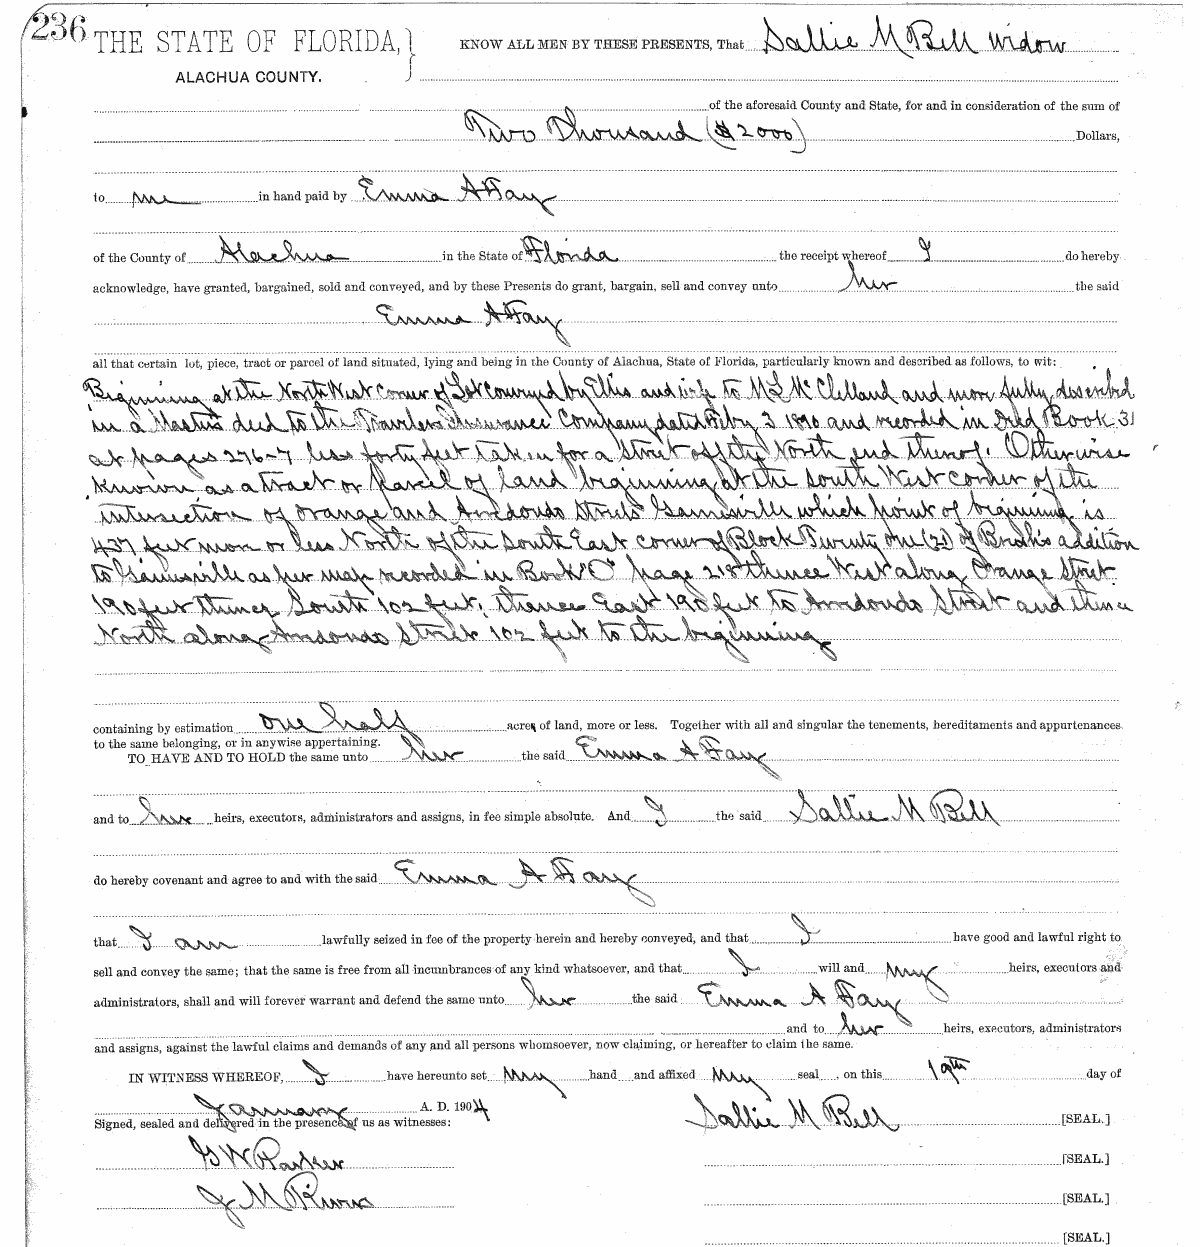 236
THE STATE OF FLORIDA, KNOW ALL MEN BY THESE PRESENTS, That Sallie M Bell widow
ALACHUA COUNTY.
of the aforesaid County and State, for and in consideration of the sum of
Two Thousand ($2000) Dollars,
to me in hand paid by Emma A Fay
of the County of Alachua in the State of Florida the receipt whereof I do hereby
acknowledge, have granted, bargained, sold and conveyed, and by these Presents do grant, bargain, sell and convey unto her the said
Emma A Fay
all that certain lot, piece, tract or parcel of land situated, lying and being in the County of Alachua, State of Florida, particularly known and described as follows, to wit:
Beginning at the North West corner of Lot conveyed by Ellis and wife to M L McClelland and more fully described
in a Masters deed to the Travelers Insurance Company dated Feby 3 1890 and recorded in Deed Book 31
at pages 276-7 less forty feet taken for a street off the North end thereof. Otherwise
known as a tract or parcel of land beginning at the South West corner of the
intersection of Orange and Arredondo Streets Gainesville which point of beginning is
437 feet more or less North of the South East corner of Block Twenty one (21) of Brush's addition
to Gainesville as per map recorded in Book "O" page 218 thence West along Orange Street
190 feet thence South 102 feet, thence East 190 feet to Arredondo Street and thence
North along Arredondo Street 102 feet to the beginning
containing by estimation one half acre of land, more or less. Together with all and singular the tenements, hereditaments and appurtenances
to the same belonging, or in anywise appertaining.
TO HAVE AND TO HOLD the same unto her the said Emma A Fay
and to her heirs, executors, administrators and assigns, in fee simple absolute. And I the said Sallie M Bell
do hereby covenant and agree to and with the said Emma A Fay
that I am lawfully seized in fee of the property herein and hereby conveyed, and that I have good and lawful right to
sell and convey the same; that the same is free from all incumbrances of any kind whatsoever, and that I will and my heirs, executors and
administrators, shall and will forever warrant and defend the same unto her the said Emma A Fay
and to her heirs, executors, administrators
and assigns, against the lawful claims and demands of any and all persons whomsoever, now claiming, or hereafter to claim the same.
IN WITNESS WHEREOF, I have hereunto set my hand and affixed my seal, on this 19th day of
January A. D. 1904 Sallie M Bell [SEAL.]
Signed, sealed and delivered in the presence of us as witnesses:
G W Parker [SEAL.]
J M Rivers [SEAL.]
[SEAL.]